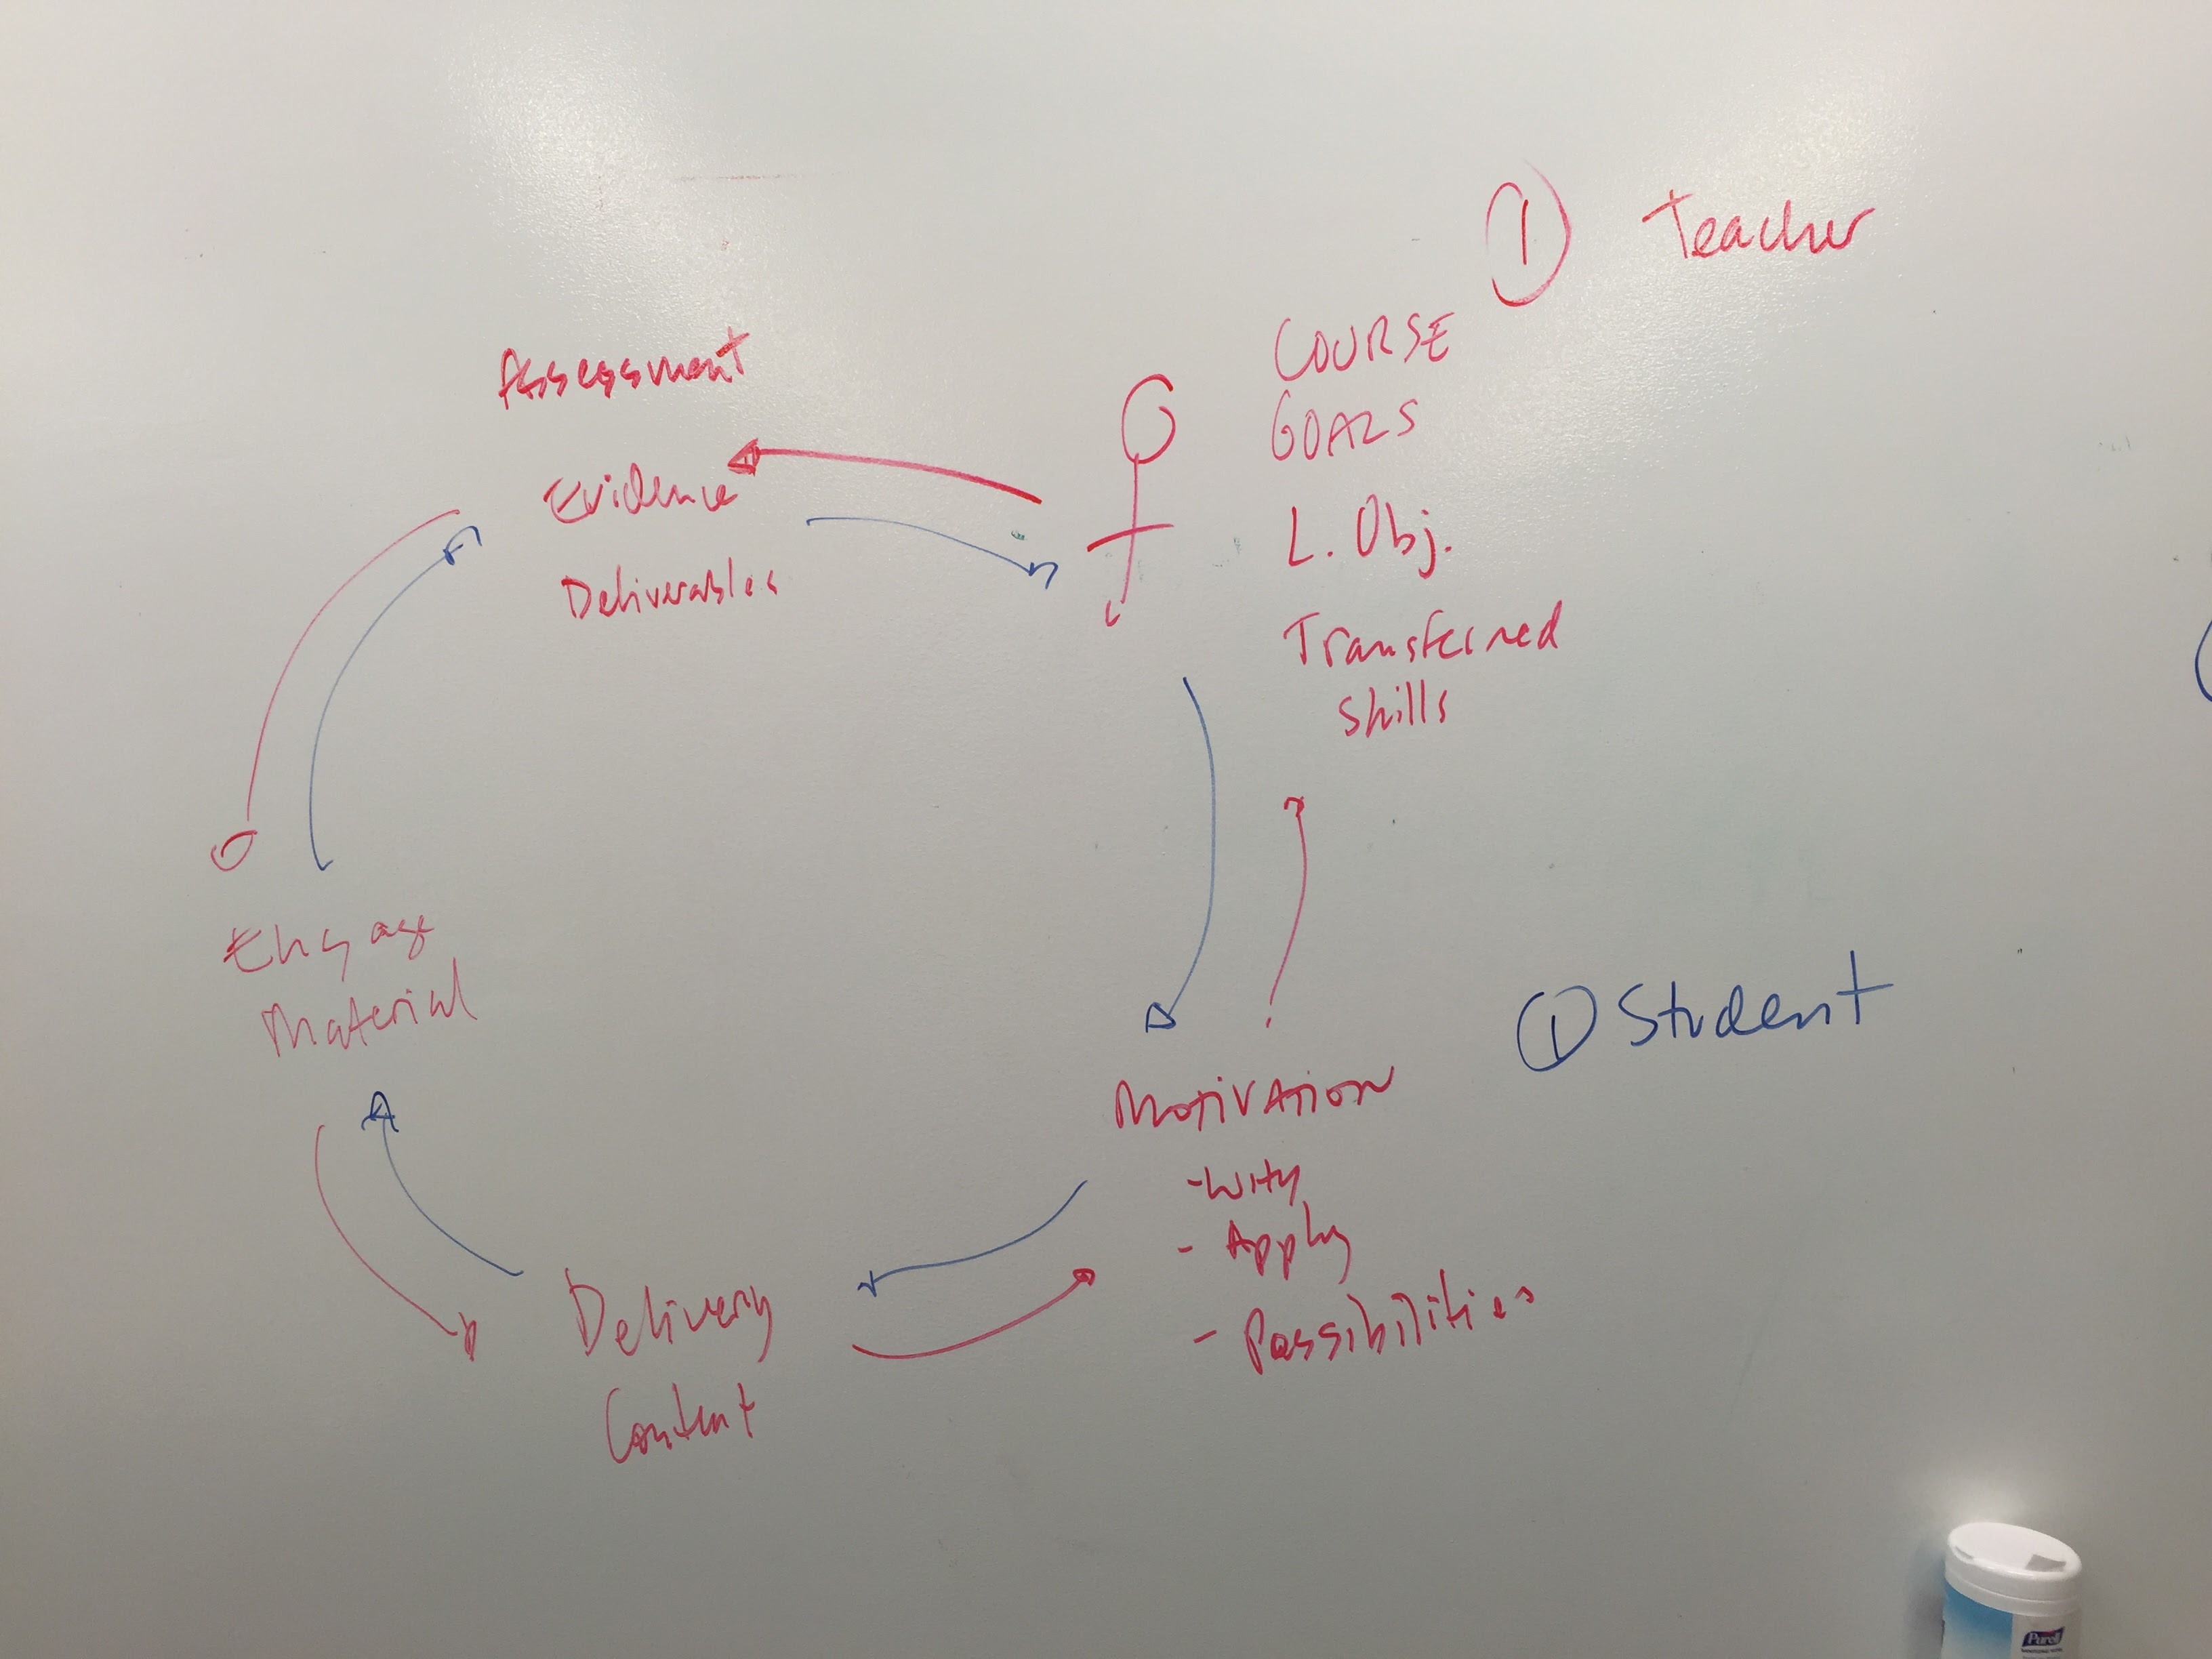 ① Teacher
COURSE
GOALS
L. Obj.
Transferred
Skills
Assessment
Evidence
Deliverables
Engage
Material
Delivery
Content
① Student
MOTIVATION
- WHY
- Apply
- Possibilities
Purell